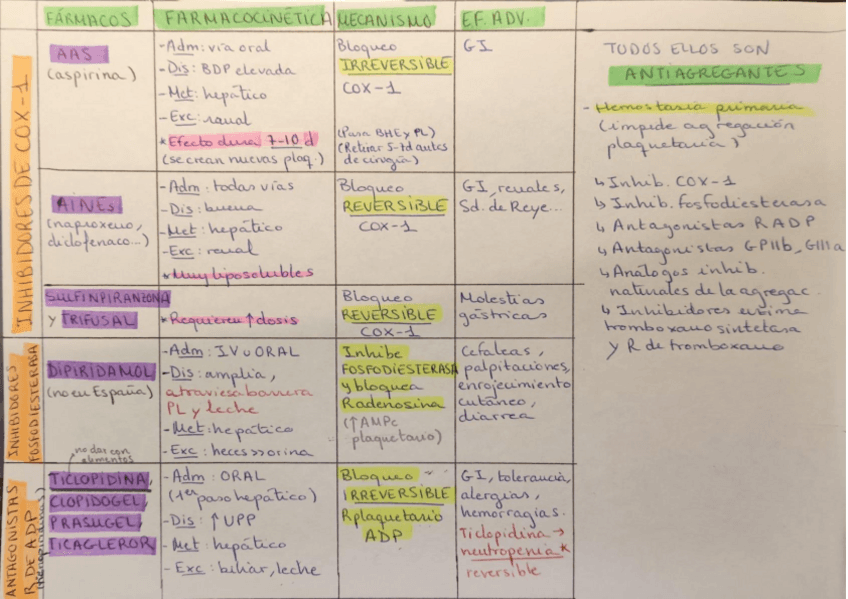 FÁRMACOS FARMACOCINÉTICA MECANISMO EF. ADV.
INHIBIDORES DE COX-1
AAS
(aspirina)
- Adm: vía oral
- Dis: BDP elevada
- Met: hepático
- Exc: renal
* Efecto dura 7-10 d
(se crean nuevas plaq.)
Bloqueo
IRREVERSIBLE
COX-1
(Pasa BHE y PL)
(Retirar 5-7d antes
de cirugía)
GI
AINEs
(naproxeno,
diclofenaco...)
- Adm: todas vías
- Dis: buena
- Met: hepático
- Exc: renal
* Muy liposolubles
Bloqueo
REVERSIBLE
COX-1
GI, renales,
Sd. de Reye...
SULFINPIRANZONA
y TRIFUSAL
* Requieren ↑ dosis
Bloqueo
REVERSIBLE
COX-1
Molestias
gástricas
INHIBIDORES
FOSFODIESTERASA
DIPIRIDAMOL
(no en España)
- Adm: IV u ORAL
- Dis: amplia,
atraviesa barrera
PL y leche
- Met: hepático
- Exc: heces y orina
Inhibe
FOSFODIESTERASA
y bloquea
R adenosina
(↑ AMPc
plaquetario)
Cefaleas,
palpitaciones,
enrojecimiento
cutáneo,
diarrea
ANTAGONISTAS
R DE ADP
no dar con
alimentos
TICLOPIDINA,
CLOPIDOGEL,
PRASUGEL,
TICAGLEROR
- Adm: ORAL
(1er paso hepático)
- Dis: ↑ UPP
- Met: hepático
- Exc: biliar, leche
Bloqueo
IRREVERSIBLE
R plaquetario
ADP
GI, tolerancia,
alergias,
hemorragias.
Ticlopidina →
neutropenia *
reversible
TODOS ELLOS SON
ANTIAGREGANTES
- Hemostasia primaria
(impide agregación
plaquetaria)
↳ Inhib. COX-1
↳ Inhib. fosfodiesterasa
↳ Antagonistas R ADP
↳ Antagonistas GPIIb, GIIIa
↳ Análogos inhib.
naturales de la agregac.
↳ Inhibidores enzima
tromboxano sintetasa
y R de tromboxano